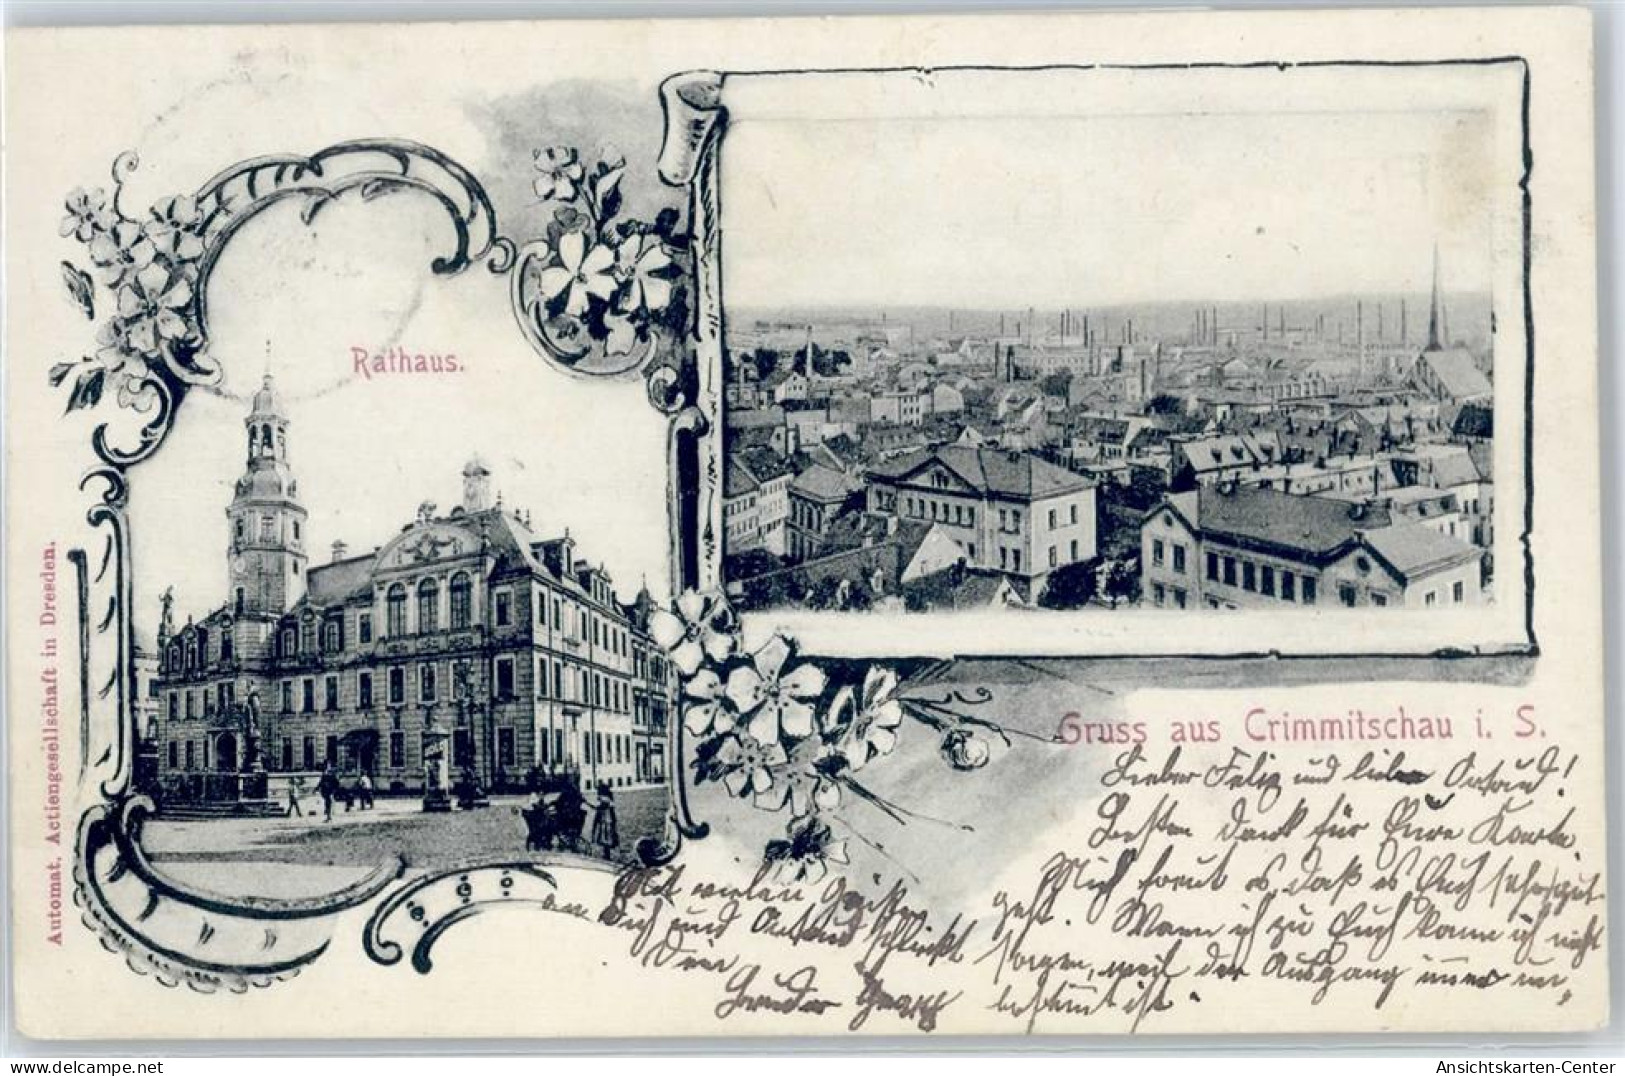 Rathaus.
Automat. Actiengesellschaft in Dresden.
Gruss aus Crimmitschau i. S.
Lieber Felix und liebe Ortrud!
Besten Dank für Eure Karte.
Mich freut es, daß es Euch sehr gut
geht. Wann ich zu Euch kann ich nicht
sagen, weil der Ausgang immer un„
bestimmt ist.
Mit vielen Grüßen
an Dich und Ortrud schließt
Dein
Bruder Georg
Ansichtskarten-Center